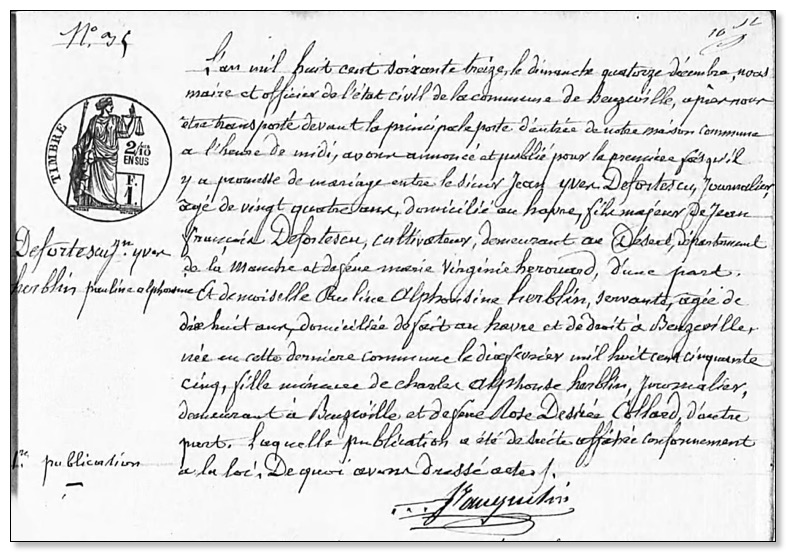 N° 35
L'an mil huit cent soixante treize, le dimanche quatorze décembre, nous
maire et officier de l'état civil de la commune de Beuzeville, après nous
être transporté devant la principale porte d'entrée de notre maison commune
à l'heure de midi, avons annoncé et publié pour la première fois qu'il
y a promesse de mariage entre le sieur Jean yves Defortescu, Journalier,
âgé de vingt quatre ans, domicilié au havre, fils majeur De Jean
françois Defortescu, cultivateur, demeurant au Désert, département
de la Manche et de feue marie Virginie herouard, d'une part.
Et demoiselle Pauline Alphonsine herblin, servante, agée de
dix huit ans, domiciliée de fait au havre et de droit à Beuzeville,
née en cette dernière commune le dix fevrier mil huit cent cinquante
cinq, fille mineure de charles Alphonse herblin, Journalier,
demeurant à Beuzeville et de feue Rose Desirée Collard, d'autre
part. Laquelle publication a été de suite affichée conformément
à la loi. De quoi avons dressé acte.
TIMBRE
2/10
EN SUS
F.
1.
Defortescu Jn. yves
herblin pauline alphonsine
1re publication